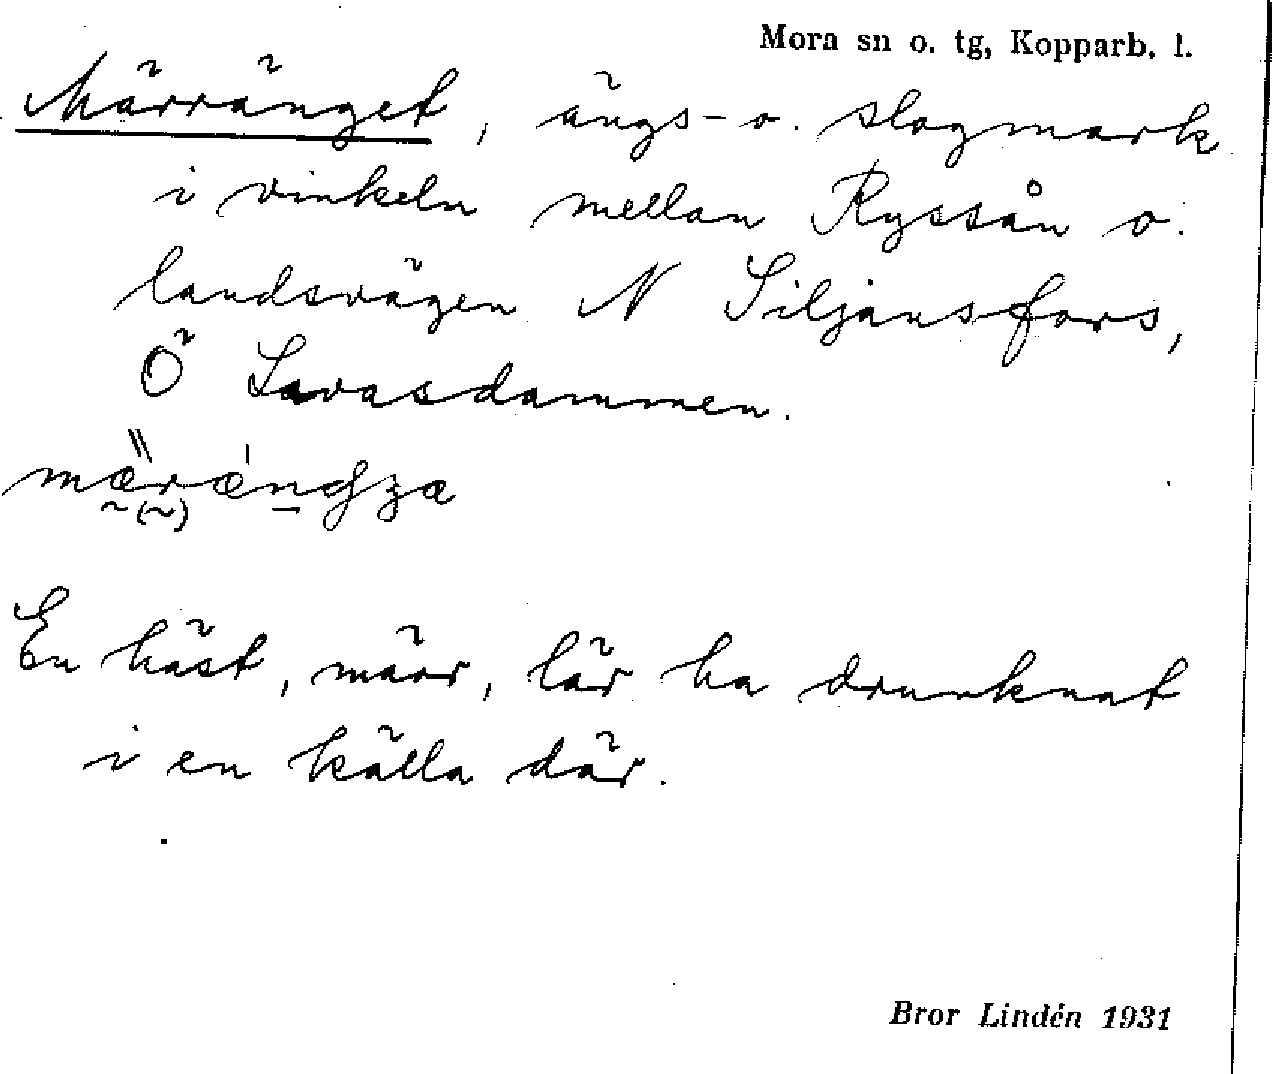 Mora sn o. tg, Kopparb. l.
Märränget, ängs- o. slogmark
i vinkeln mellan Ryssån o.
landsvägen N Siljansfors,
Ö Lavasdammen.
En häst, märr, lär ha drunknat
i en källa där.
Bror Lindén 1931